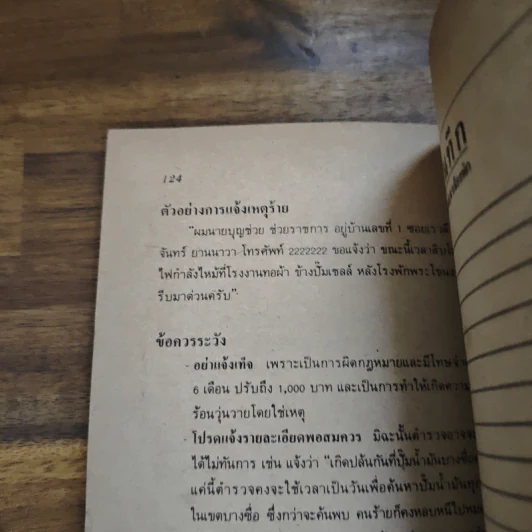 124
ตัวอย่างการแจ้งเหตุร้าย
"ผมนายบุญช่วย ช่วยราชการ อยู่บ้านเลขที่ 1
จันทร์ ยานนาวา โทรศัพท์ 2222222 ขอแจ้งว่า ขณะนี้เวลาสิบ
ไฟกำลังไหม้ที่โรงงานทอผ้า ข้างปั๊มเชลล์ หลังโรงพักพระโขนง
รีบมาด่วนครับ"
ข้อควรระวัง
- อย่าแจ้งเท็จ เพราะเป็นการผิดกฎหมายและมีโทษ
6 เดือน ปรับถึง 1,000 บาท และเป็นการทำให้เกิดความ
ร้อนวุ่นวายโดยใช่เหตุ
- โปรดแจ้งรายละเอียดพอสมควร มิฉะนั้นตำรวจอาจจะ
ได้ไม่ทันการ เช่น แจ้งว่า "เกิดปล้นกันที่ปั๊มน้ำมันบางซื่อ
แค่นี้ตำรวจคงจะใช้เวลาเป็นวันเพื่อค้นหาปั๊มน้ำมัน
ในเขตบางซื่อ ซึ่งกว่าจะค้นพบ คนร้ายก็คงหลบหนีไป